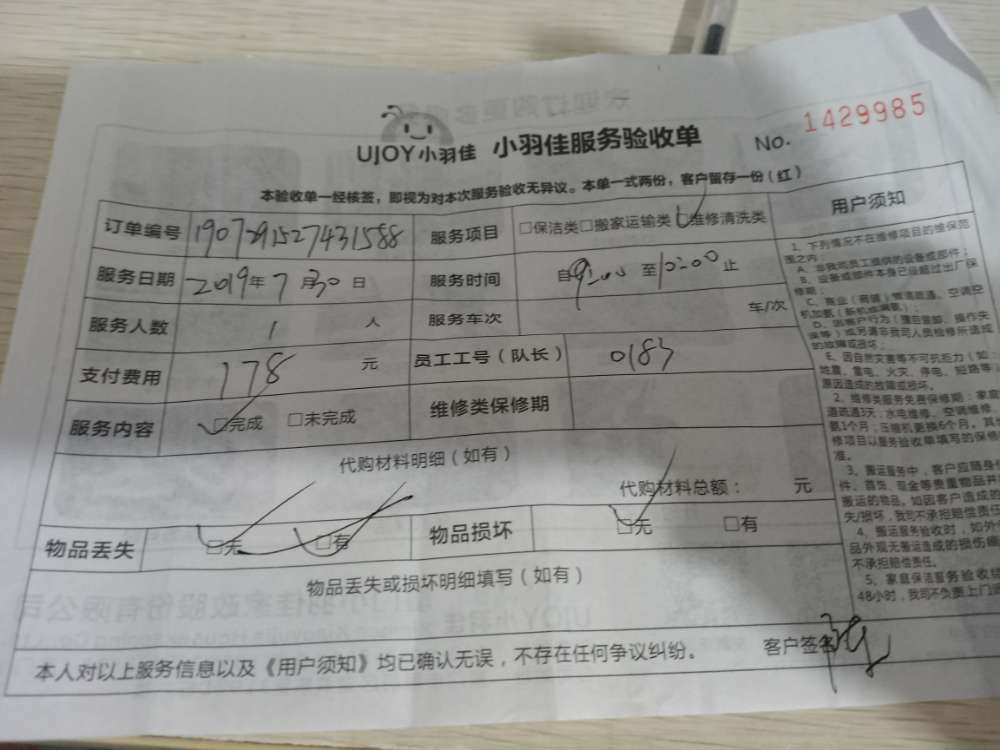 UJOY小羽佳 小羽佳服务验收单 No. 1429985
本验收单一经核签，即视为对本次服务验收无异议。本单一式两份，客户留存一份（红）
订单编号 1907291527431588 服务项目 □保洁类□搬家运输类□维修清洗类
服务日期 2019年7月30日 服务时间 自9:00至10:00止
服务人数 1 人 服务车次 车/次
支付费用 178 元 员工工号（队长） 0183
服务内容 □完成 □未完成 维修类保修期
代购材料明细（如有）
代购材料总额： 元
物品丢失 □无 □有 物品损坏 □无 □有
物品丢失或损坏明细填写（如有）
本人对以上服务信息以及《用户须知》均已确认无误，不存在任何争议纠纷。 客户签名
用户须知
1、下列情况不在维修项目的维保范
围之内：
A、非我司员工提供的设备或部件；
B、设备或部件本身已经超过出厂保
修期；
C、商业（商铺）管道疏通、空调空
机加氨（新机或漏氨）；
D、因客户行为（擅自音卸、操作失
误等）或另请非我司人员检修所造成
的故障或损坏；
E、因自然灾害等不可抗拒力（如：
地震、雷电、火灾、停电、短路等）
原因造成的故障或损坏。
2、维修类服务免费保修期：家庭
道疏通3天；水电维修、空调维修、
氨1个月；压缩机更换6个月。其
修项目以服务验收单填写的保修
准。
3、搬运服务中，客户应随身
件、首饰、现金等贵重物品并
搬运的物品。如因客户造成的
失/损坏，我司不承担赔偿责任
4、搬运服务验收时，如外
品外观无搬运造成的损伤痕
不承担赔偿责任。
5、家庭保洁服务验收
48小时，我司不负责上门